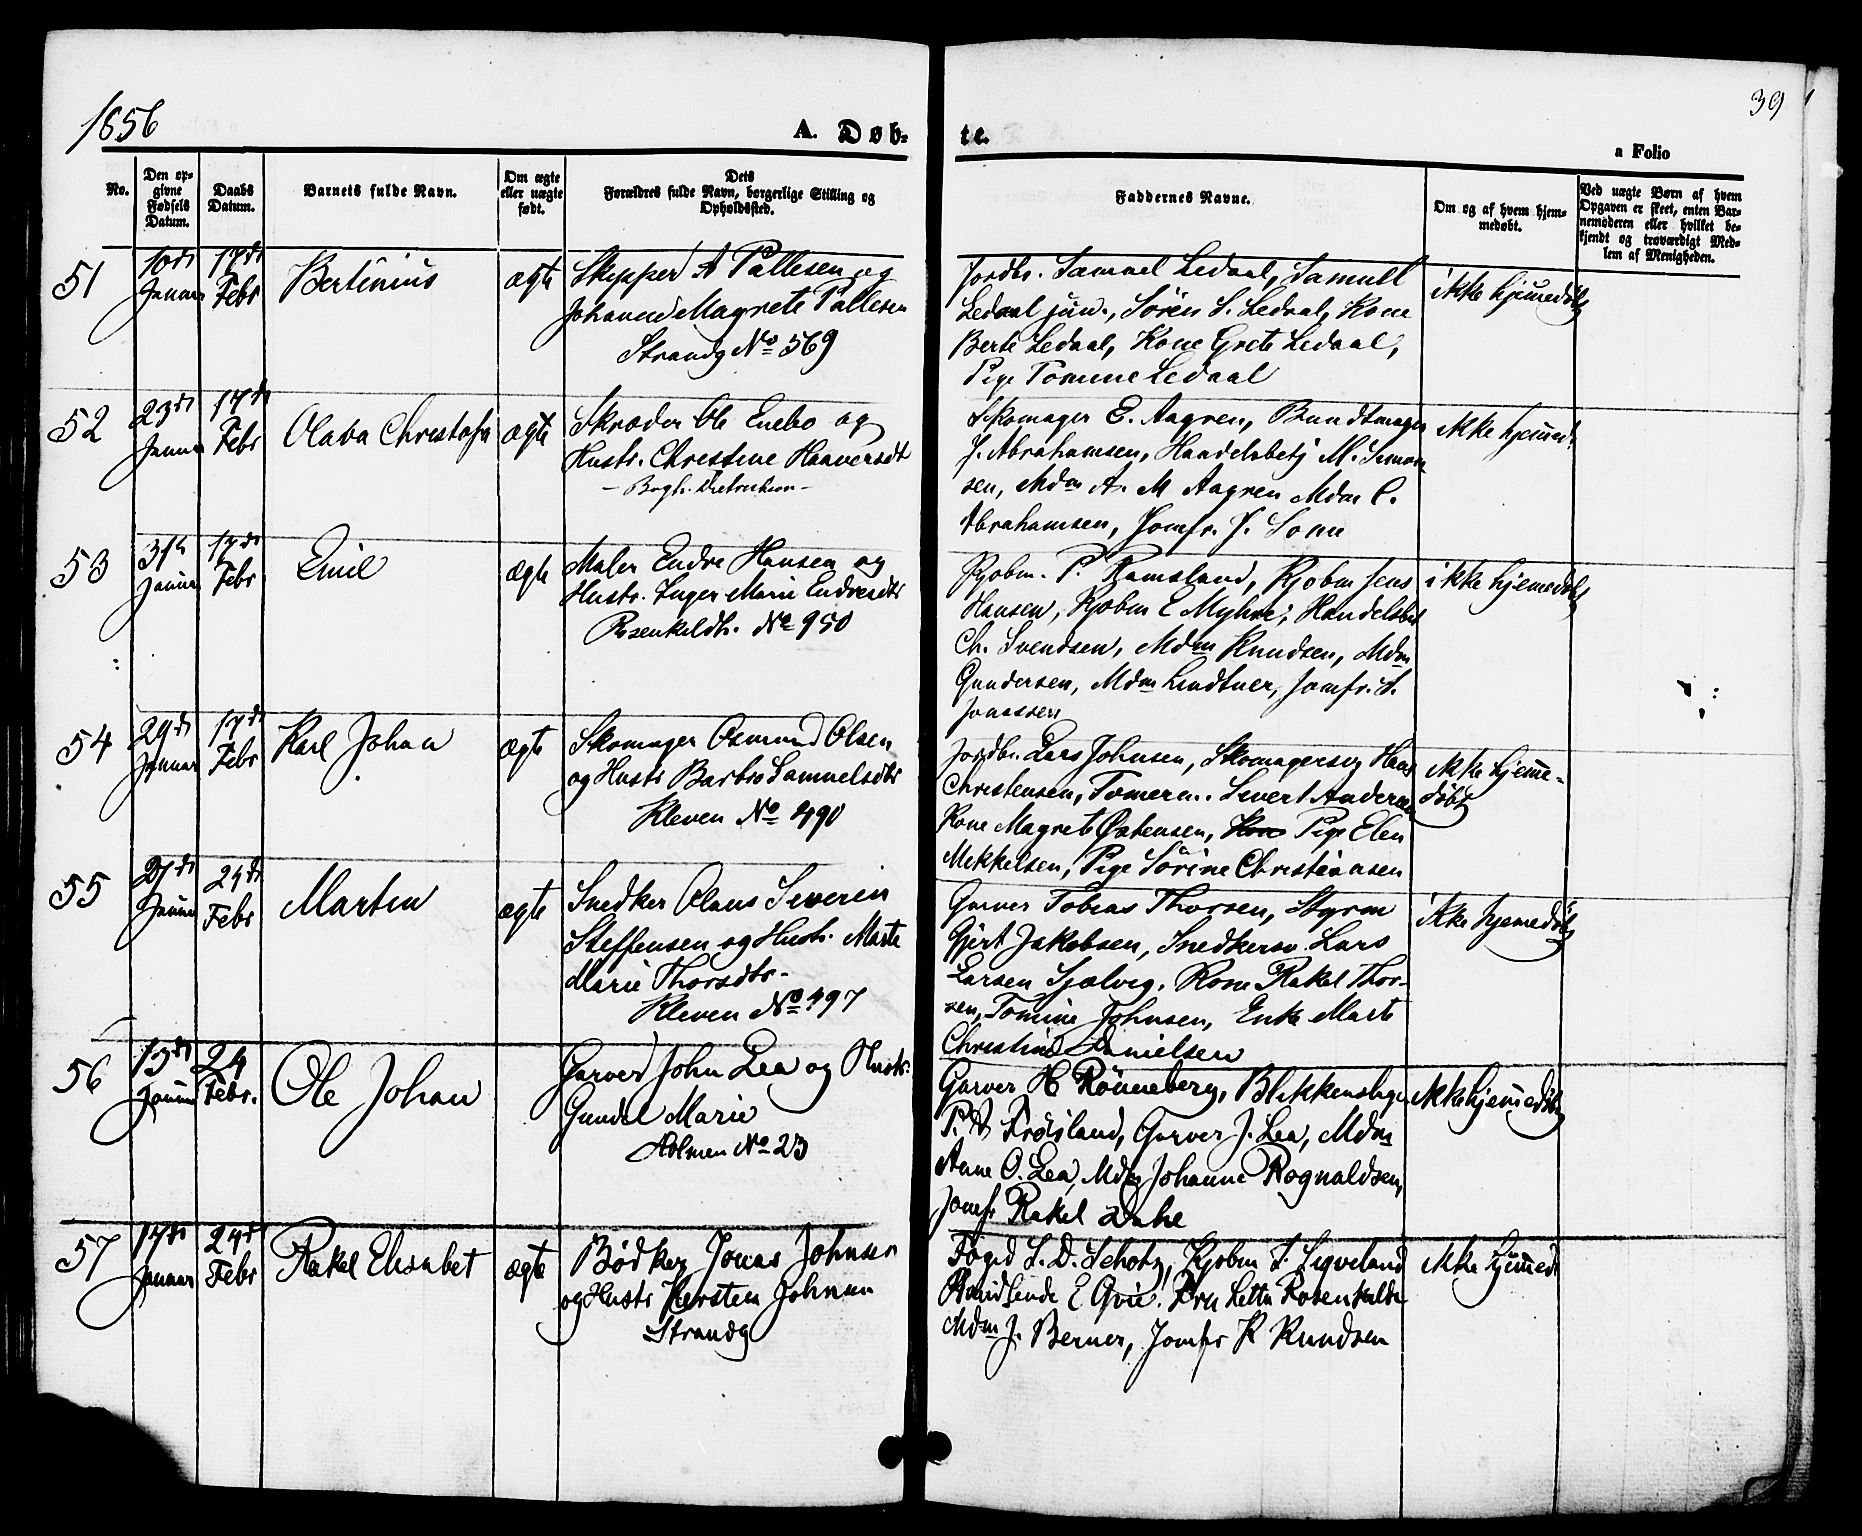 1856
39
A. Døb-
te.
a Folio
No.
Den op-
givne
Fødsels
Datum.
Daabs
Datum.
Barnets fulde Navn.
Om ægte
eller uægte
født.
Dets
Forældres fulde Navn, borgerlige Stilling og
Opholdssted.
Faddernes Navne.
Om og af hvem hjem-
medøbt.
Ved uægte Børn af hvem
Opgaven er skeet, enten Bar-
nemoderen eller hvilket be-
kjendt og troværdigt Med-
lem af Menigheden.
51
Januar
17de
Febr
Bertinius
ægte
Skipper A Pallesen og
Johanne Magrete Pallesen
Strandg No 569
Jordbr. Samuel Ledaal, Samuel
Ledaal jun., Sören S. Ledaal, Kone
Berte Ledaal, Kone Grete Ledaal,
Pige Tomine Ledaal
ikke hjemmedøbt
52
23de
Januar
17de
Febr
Olava Christofa
ægte
Skræder Ole Enebo og
Hustr. Christine Haaversdt
Skomager E. Aagren, Bundtmager
J. Abrahamsen, Handelsbetj M. Simon
sen, Mdm A. M Aagren Mdm C.
Abrahamsen, Jomfr. J. Somme
ikke hjemmed.
53
31te
Januar
17de
Febr
Emil
ægte
Maler Endre Hansen og
Hustr. Inger Marie Endresdtr
Rosenkildth. No 950
Kjøbm. P. Ramsland, Kjøbm Jens
Hansen, Kjøbm E Myhre, Handelsbet
Ch. Svendsen, Mdm Knudsen, Mdm
Gundersen, Mdm Lindtner, Jomfr. S.
Jonassen
ikke hjemmedøbt
54
29de
Januar
17de
Febr
Karl Johan
ægte
Skomager Osmund Olsen
og Hustr Barbro Samuelsdtr
Kleven No 490
Jordbr. Lars Johnsen, Skomagersv Hans
Christensen, Tømerm. Sivert Andersen
Kone Magrete Østensen, Kone Pige Elen
Mikkelsen, Pige Sörine Christiansen
ikke hjemme-
døbt
55
27de
Januar
24de
Febr
Martin
ægte
Snedker Olaus Severin
Steffensen og Hustr. Marte
Marie Thorsdtr.
Kleven No 497
Garver Tobias Thorsen, Styrm
Gjert Jakobsen, Snedkersv. Lars
Larsen Sjølvig. Kone Rakel Thor-
sen, Tomine Johnsen, Enke Marte
Christine Danielsen
ikke hjemmedøbt
56
13de
Januar
24
Febr.
Ole Johan
Garver John Lea og Hustr.
Gundel Marie
Holmen No 23
Garver H Rönneberg, Blikkenslager
P. A Fröisland, Garver J. Lea, Mdm
Anne O. Lea, Mdm Johanne Rognaldsen,
Jomfr Rakel Dahl
ikke hjemmedøbt
57
17de
Januar
24de
Febr
Rakel Elisabet
ægte
Bødker Jonas Johnsen
og Hustr Kersten Johnsen
Strandg
Foged S. D. Schotz, Kjøbm S. Sigveland
E Qvie. Fru Letta Rosenkilde
Mdm J. Berner, Jomfr K Knudsen
ikke hjemmed